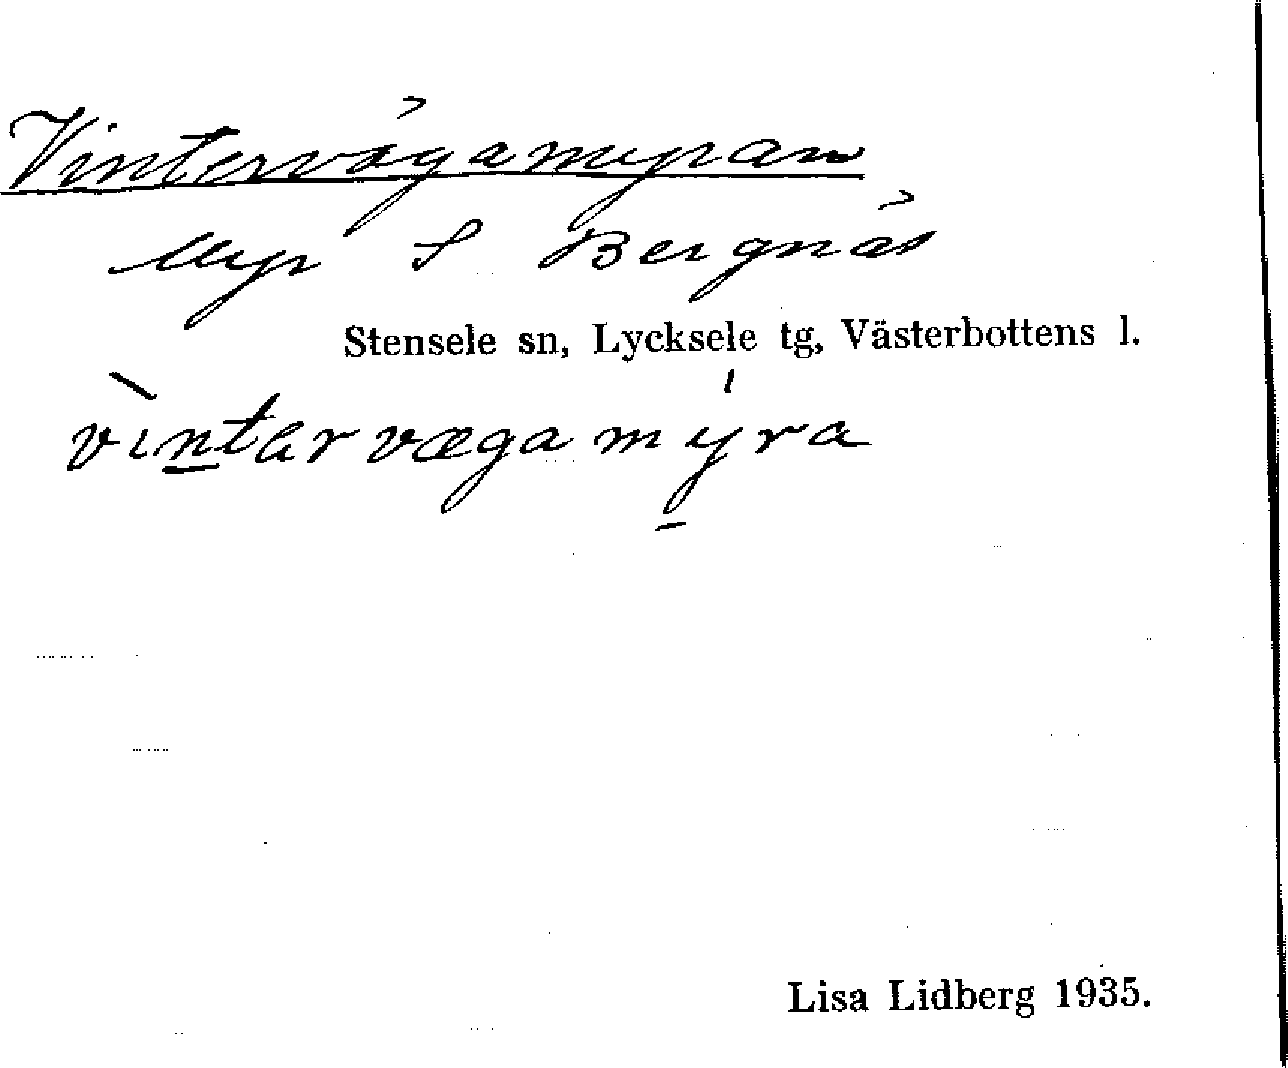 Vintervägamyran
Myr S Bergnäs
Stensele sn, Lycksele tg, Västerbottens l.
vìntarvægamýra
Lisa Lidberg 1935.